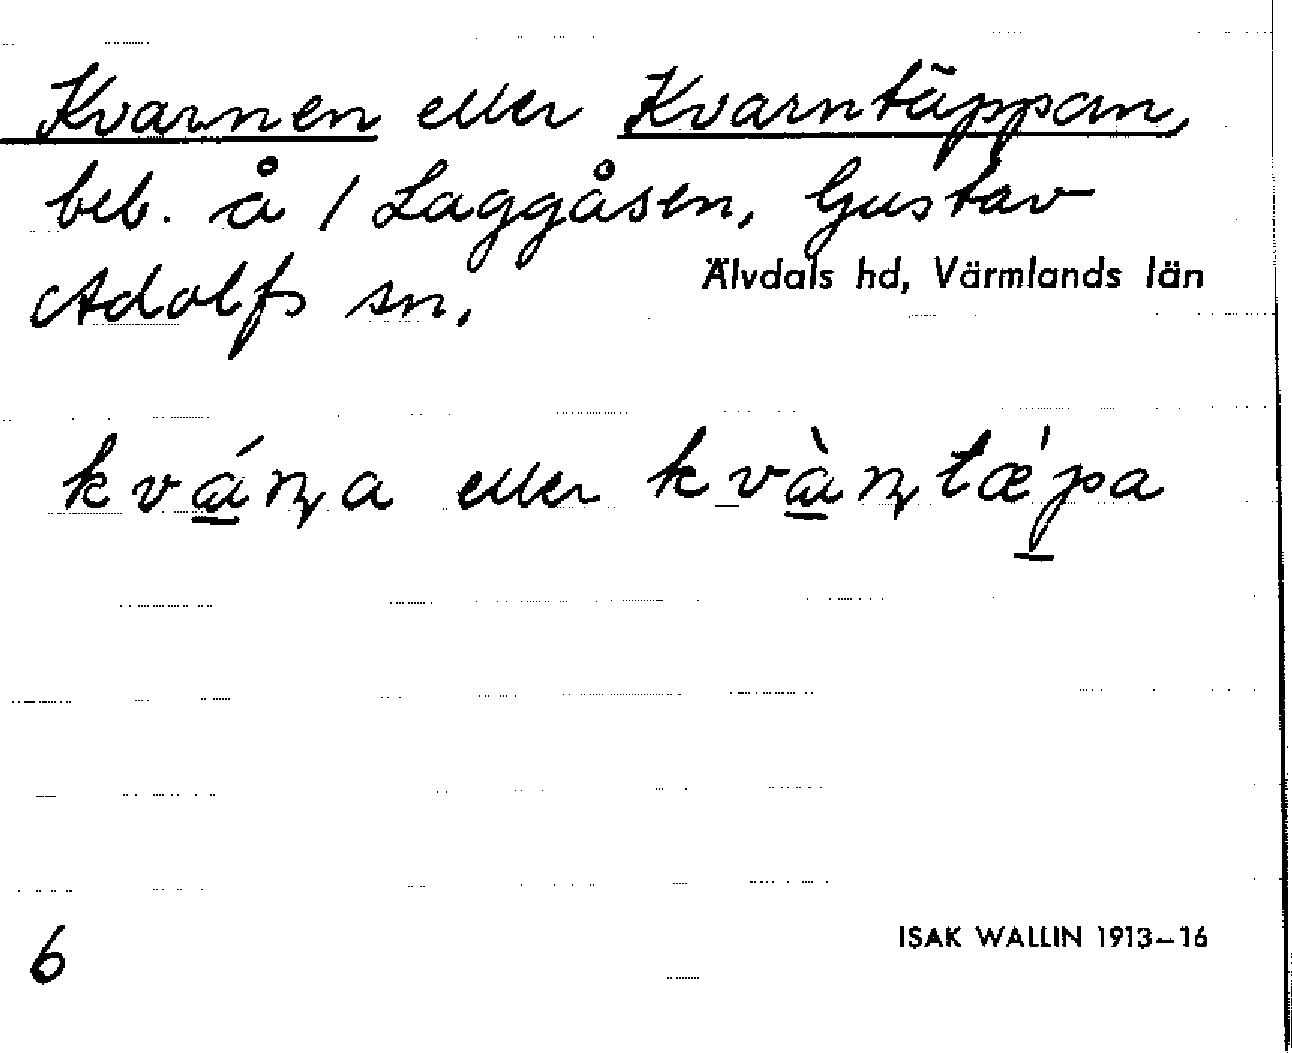 Kvarnen eller Kvarntäppan,
beb. å 1 Laggåsen, Gustav
Adolfs sn.
Älvdals hd, Värmlands län
kvą́ɳa eller kvą̀ɳtǽpa
6
ISAK WALLIN 1913–16